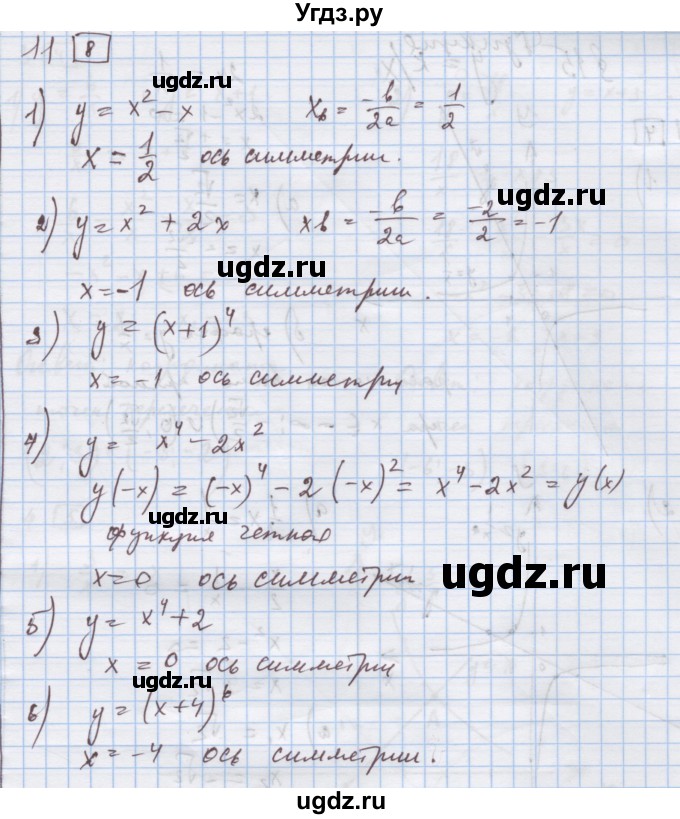 Угдз.ру
11 8
ugdz.ru
1) y = x² - x   xв = -b/2a = 1/2.
x = 1/2 ось симметрии.
ugdz.ru
2) y = x² + 2x   xв = -b/2a = -2/2 = -1
ugdz.ru
x = -1 ось симметрии.
3) y = (x+1)⁴
ugdz.ru
x = -1 ось симметри
4) y = x⁴ - 2x²
y(-x) = (-x)⁴ - 2(-x)² = x⁴ - 2x² = y(x)
ugdz.ru
функция четная
ugdz.ru
x=0 ось симметрии
5) y = x⁴ + 2
x = 0 ось симметрии
ugdz.ru
6) y = (x+4)⁶
ugdz.ru
x = -4 ось симметрии.
ugdz.ru